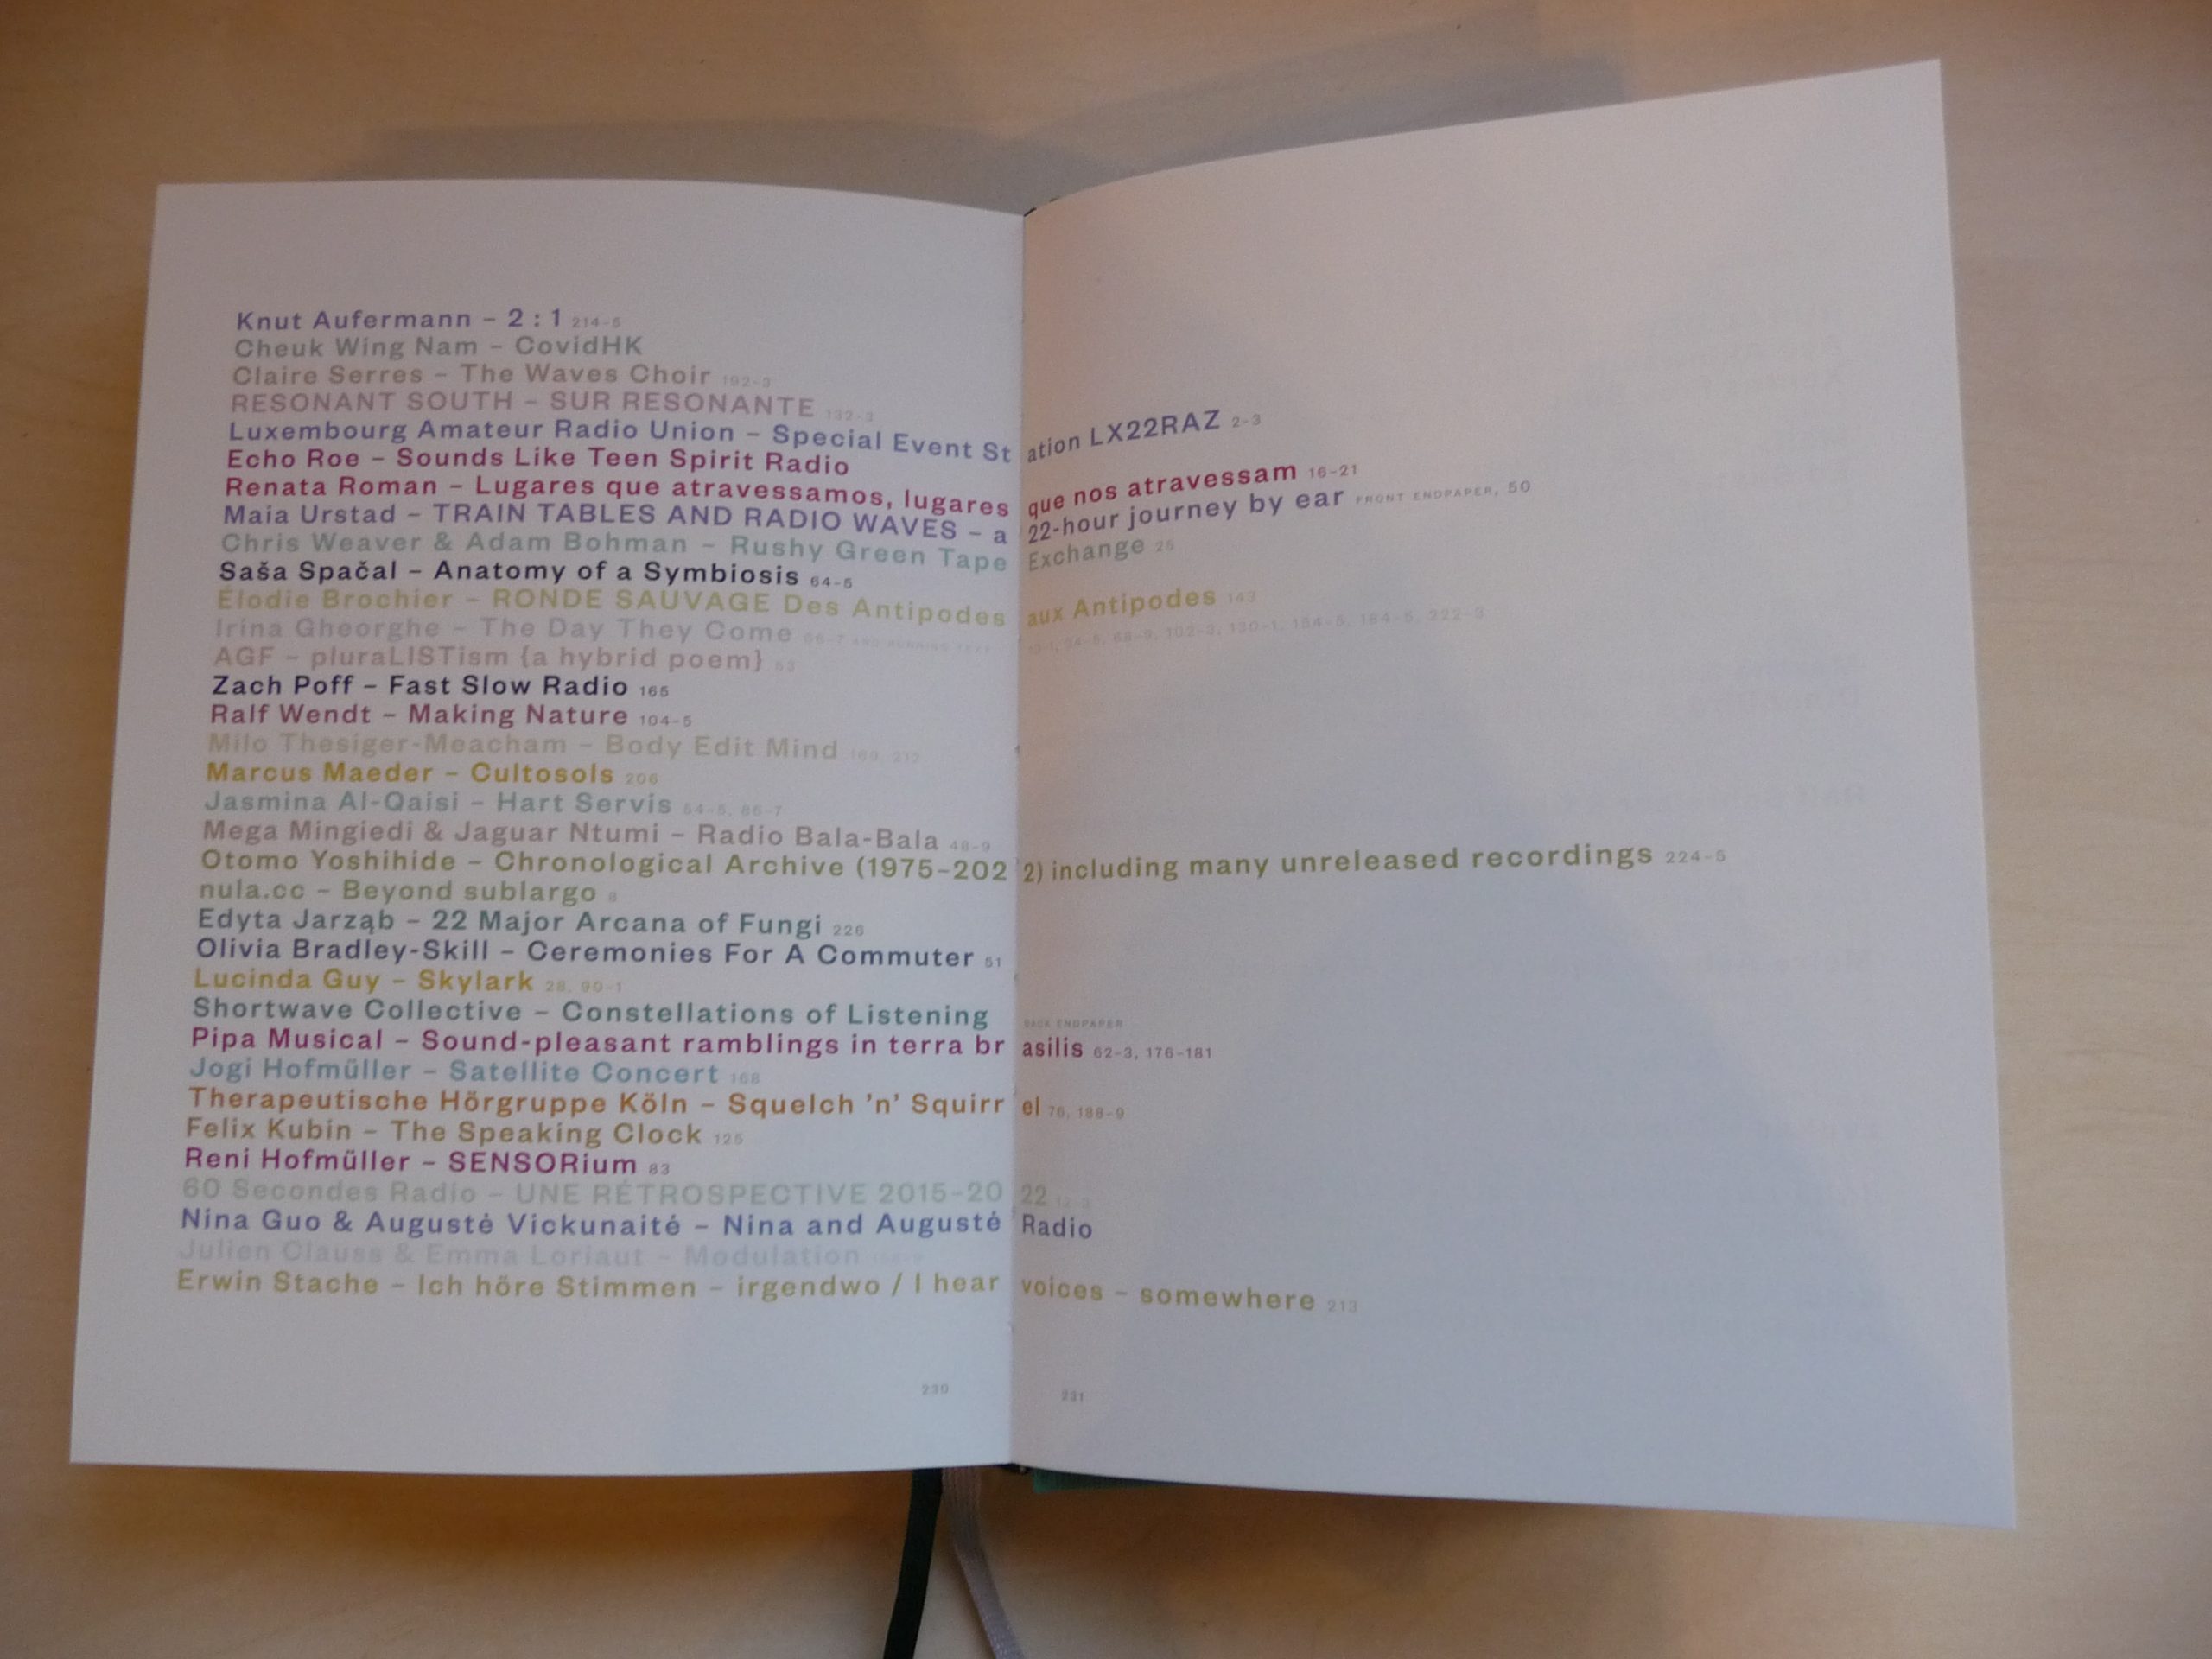 Knut Aufermann – 2 : 1 214-5
Cheuk Wing Nam – CovidHK
Claire Serres – The Waves Choir 192-3
RESONANT SOUTH – SUR RESONANTE 132-3
Luxembourg Amateur Radio Union – Special Event Station LX22RAZ 2-3
Echo Roe – Sounds Like Teen Spirit Radio
Renata Roman – Lugares que atravessamos, lugares que nos atravessam 16-21
Maia Urstad – TRAIN TABLES AND RADIO WAVES – a 22-hour journey by ear FRONT ENDPAPER, 50
Chris Weaver & Adam Bohman – Rushy Green Tape Exchange 25
Saša Spačal – Anatomy of a Symbiosis 64-5
Élodie Brochier – RONDE SAUVAGE Des Antipodes aux Antipodes 143
Irina Gheorghe – The Day They Come 66-7 AND RUNNING TEXT 68-9, 102-3, 130-1, 154-5, 184-5, 222-3
AGF – pluraLISTism {a hybrid poem} 53
Zach Poff – Fast Slow Radio 165
Ralf Wendt – Making Nature 104-5
Milo Thesiger-Meacham – Body Edit Mind 212
Marcus Maeder – Cultosols 206
Jasmina Al-Qaisi – Hart Servis 54-5, 86-7
Mega Mingiedi & Jaguar Ntumi – Radio Bala-Bala 48-9
Otomo Yoshihide – Chronological Archive (1975-2022) including many unreleased recordings 224-5
nula.cc – Beyond sublargo 8
Edyta Jarząb – 22 Major Arcana of Fungi 226
Olivia Bradley-Skill – Ceremonies For A Commuter 51
Lucinda Guy – Skylark 28, 90-1
Shortwave Collective – Constellations of Listening BACK ENDPAPER
Pipa Musical – Sound-pleasant ramblings in terra brasilis 62-3, 176-181
Jogi Hofmüller – Satellite Concert 168
Therapeutische Hörgruppe Köln – Squelch ’n’ Squirrel 76, 188-9
Felix Kubin – The Speaking Clock 125
Reni Hofmüller – SENSORium 83
60 Secondes Radio – UNE RÉTROSPECTIVE 2015-2022 12-3
Nina Guo & Augustė Vickunaitė – Nina and Augustė Radio
Julien Clauss & Emma Loriaut – Modulation
Erwin Stache – Ich höre Stimmen – irgendwo / I hear voices – somewhere 213
230
231